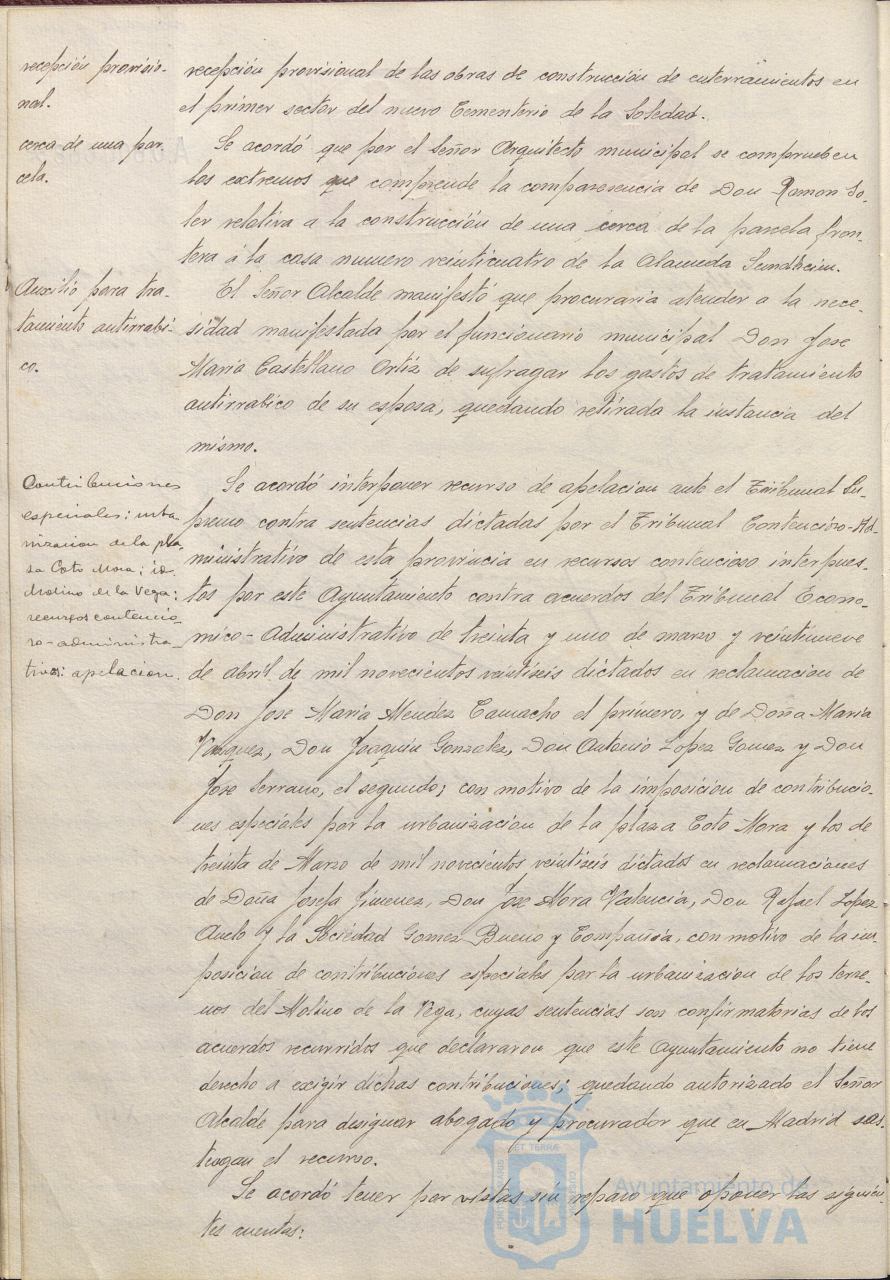 recepción provisio-
nal.
cerca de una par
cela.
Auxilio para tra-
tamiento antirrabi-
co.
Contribuciones
especiales: urba-
nizacion de la pla-
za Coto Mora; id.
Molino de la Vega;
recursos contencio-
so-administra-
tivos: apelacion.
recepción provisional de las obras de construcción de enterramientos en
el primer sector del nuevo Cementerio de la Soledad.
Se acordó que por el Señor Arquitecto municipal se comprueben
los extremos que comprende la comparesencia de Don Ramon So-
ler relativa a la construcción de una cerca de la parcela fron-
tera á la casa numero veinticuatro de la Alameda Sundheim.
El Señor Alcalde manifestó que procuraria atender a la nece-
sidad manifestada por el funcionario municipal Don Jose
Maria Castellano Ortiz de sufragar los gastos de tratamiento
antirrabico de su esposa, quedando retirada la instancia del
mismo.
Se acordó interponer recurso de apelacion ante el Tribunal Su-
premo contra sentencias dictadas por el Tribunal Contencioso-Ad-
ministrativo de esta provincia en recursos contencioso interpues-
tos por este Ayuntamiento contra acuerdos del Tribunal Econo-
mico-Administrativo de treinta y uno de marzo y veintinueve
de abril de mil novecientos veintiseis dictados en reclamacion de
Don Jose Maria Mendez Camacho el primero, y de Doña Maria
Vazquez, Don Joaquin Gonzalez, Don Antonio Lopez Gomez y Don
Jose Serrano, el segundo; con motivo de la imposición de contribucio-
nes especiales por la urbanizacion de la plaza Coto Mora y los de
treinta de Marzo de mil novecientos veintiseis dictados en reclamaciones
de Doña Josefa Jimenez, Don Jose Mora Valencia, Don Rafael Lopez
y la Sociedad Gomez Bueno y Compañia, con motivo de la im-
posicion de contribuciones especiales por la urbanizacion de los terre-
nos del Molino de la Vega, cuyas sentencias son confirmatorias de los
acuerdos recurridos que declararon que este Ayuntamiento no tiene
derecho a exigir dichas contribuciones; quedando autorizado el Señor
Alcalde para designar abogado y procurador que en Madrid sos-
tengan el recurso.
Se acordó tener por vistas sin reparo que oponer las siguien-
tes cuentas:
Ayuntamiento de
HUELVA